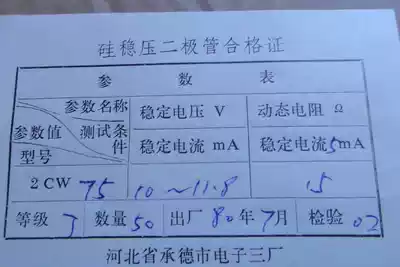 硅稳压二极管合格证
参 数 表
参数名称 稳定电压 V 动态电阻 Ω
参数值 测试条件 稳定电流 mA 稳定电流5mA
型号
2CW 75 10~11.8 15
等级 J 数量 50 出厂 80年7月 检验 02
河北省承德市电子三厂